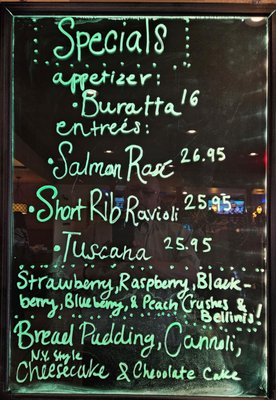 Specials
appetizer:
• Buratta 16
entreés:
• Salmon Rose 26.95
• Short Rib Ravioli 25.95
• Tuscana 25.95
Strawberry, Raspberry, Black-
berry, Blueberry, & Peach Crushes &
Bellinis!
Bread Pudding, Cannoli,
N.Y. Style
Cheesecake & Chocolate Cake